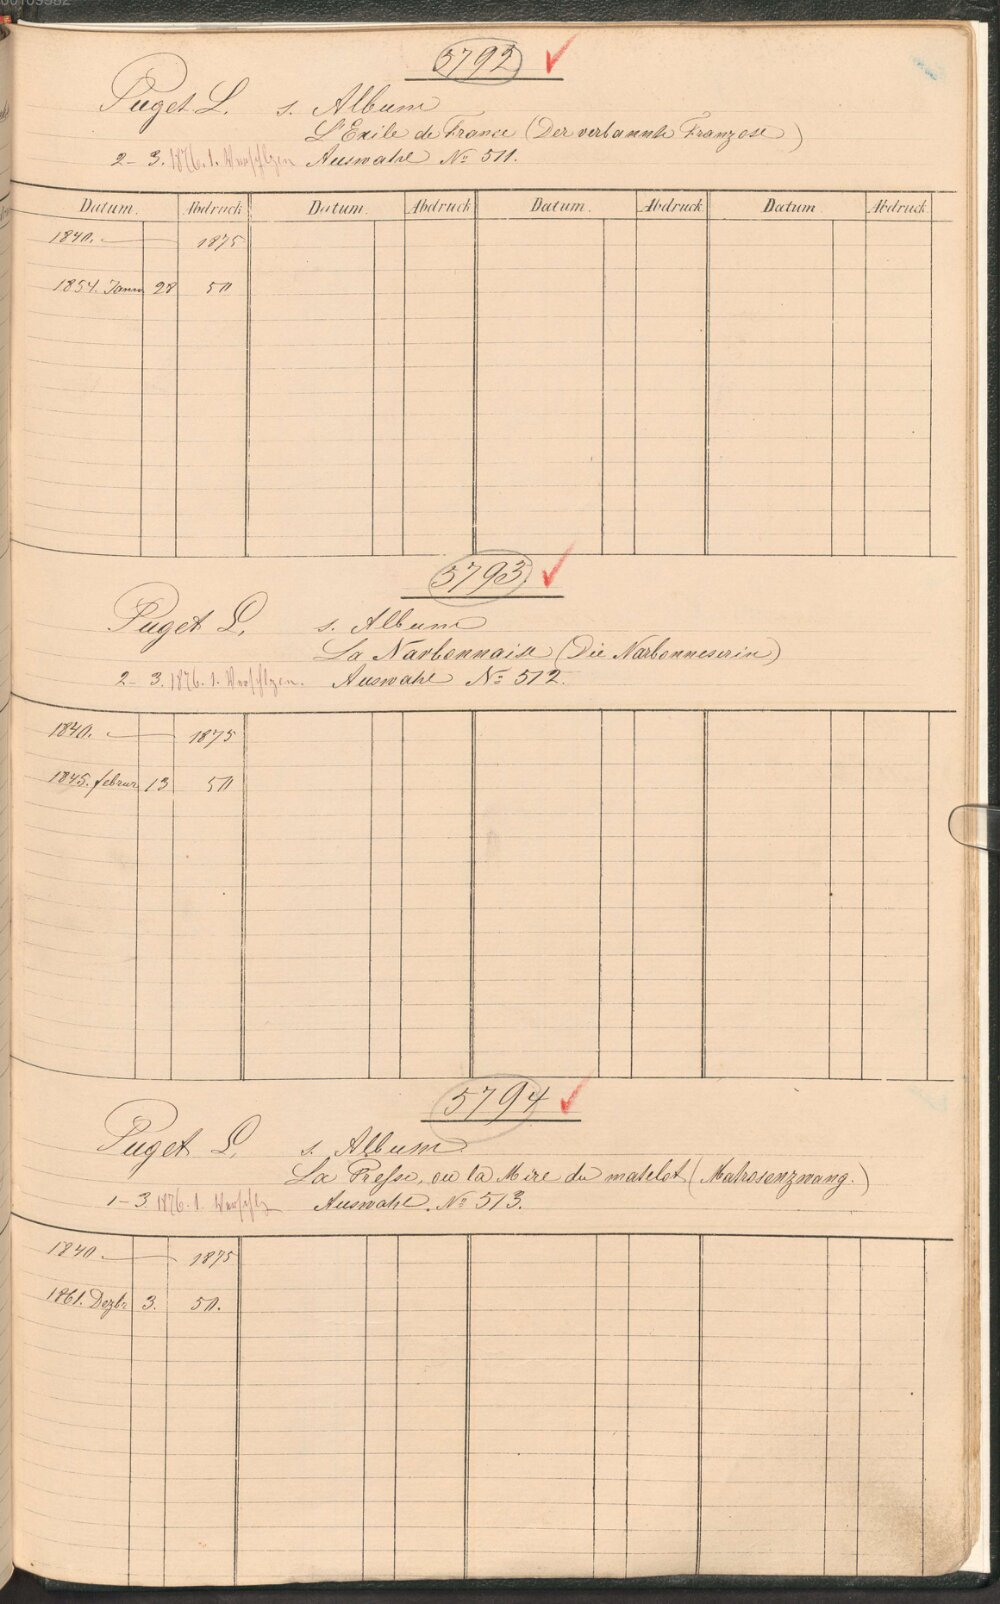 5792 ✓
Puget L. s. Album
L'Exile de France (Der verbannte Franzose)
2-3. 1876. 1. Auswahl No 511.
Datum. Abdruck Datum. Abdruck Datum. Abdruck Datum Abdruck
1840. — 1875
1854. Janu 28 50
5793 ✓
Puget L. s. Album
La Narbonnaise (Die Narbonneserin)
2-3. 1876. 1. Auswahl No 512.
1840. — 1875
1845. februr 13 50
5794 ✓
Puget L. s. Album
La Presse, ou la Mère du matelot (Matrosenzwang.)
1-3 1876. 1. Auswahl. No 513.
1840 — 1875
1861. Dezbr 3. 50.